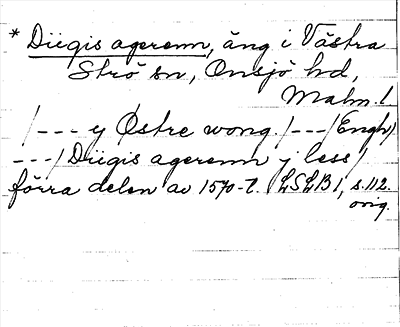 * Diigis agerenn, äng i Västra
Strö sn, Onsjö hd,
Malm. l.
/--- y Østre wong. /---/ Engh/
---/ Diigis agerenn j less/
förra delen av 1570-t. LSLB 1, s. 112.
orig.